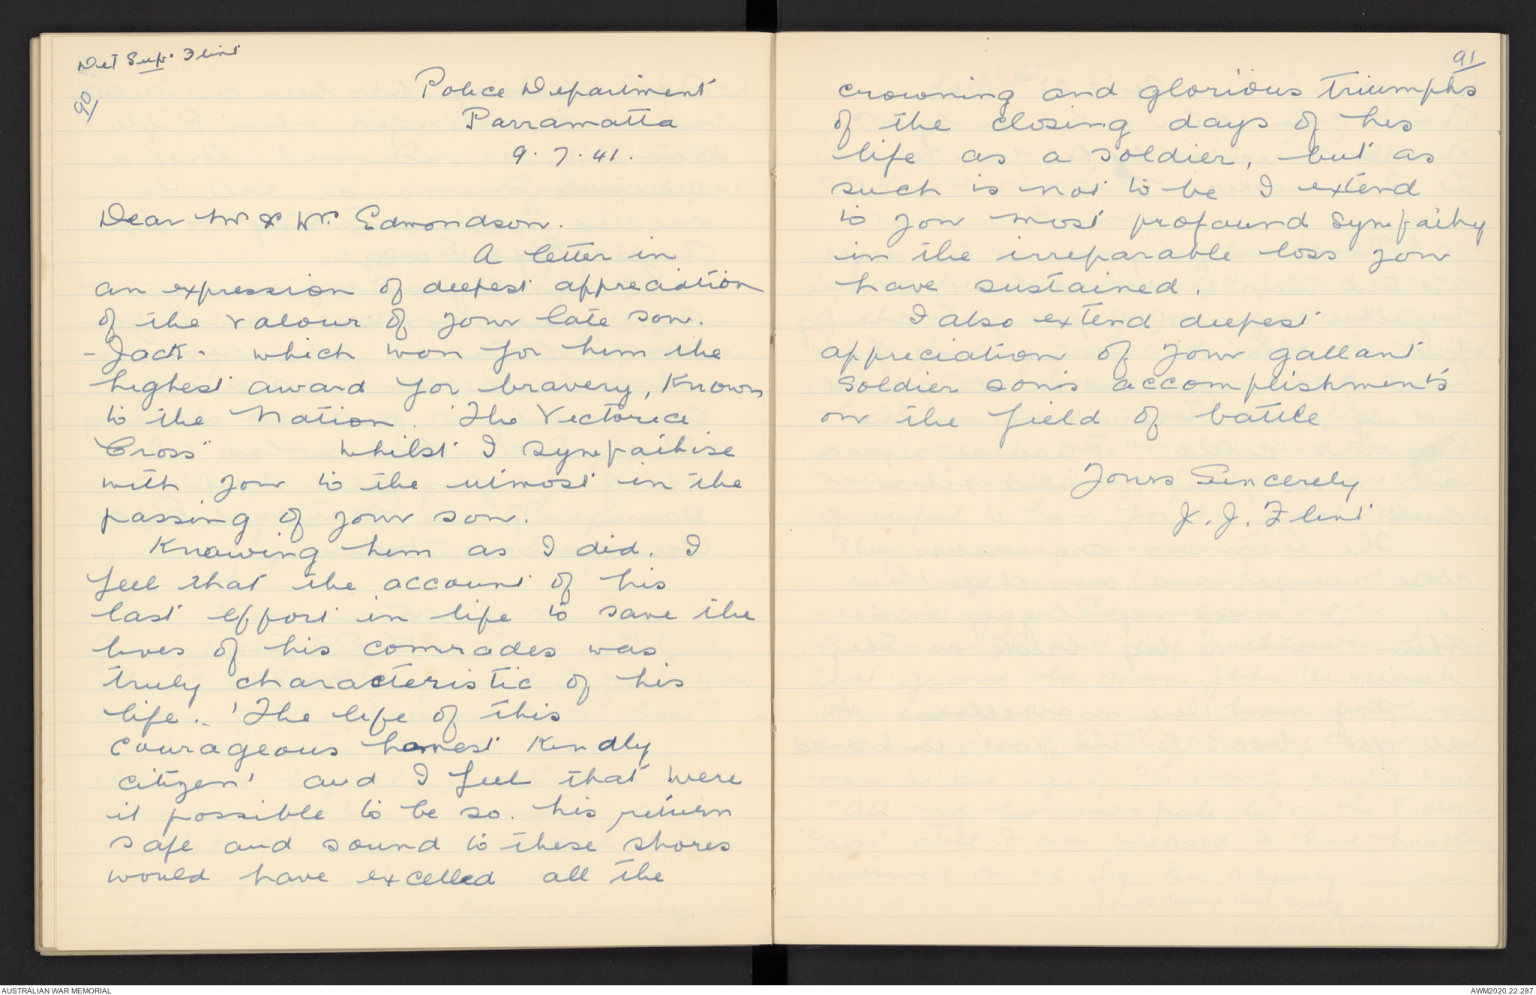 Det Sup. Flint
90
Police Department
Parramatta
9.7.41.
Dear Mr & Mrs. Edmondson.
A letter in
an expression of deepest appreciation
of the valour of your late son.
- Jack - which won for him the
highest award for bravery, known
to the Nation. "The Victoria
Cross" Whilst I sympathise
with you to the utmost in the
passing of your son.
Knowing him as I did. I
feel that the account of his
last effort in life to save the
lives of his comrades was
truly characteristic of his
life. 'The life of this
courageous honest kindly
citizen' and I feel that were
it possible to be so. his return
safe and sound to these shores
would have excelled all the
91
crowning and glorious triumphs
of the closing days of his
life as a soldier, but as
such is not to be I extend
to you most profound sympathy
in the irreparable loss you
have sustained.
I also extend deepest
appreciation of your gallant
soldier son's accomplishments
on the field of battle
Yours Sincerely
J. J. Flint
AUSTRALIAN WAR MEMORIAL
AWM2020.22.287